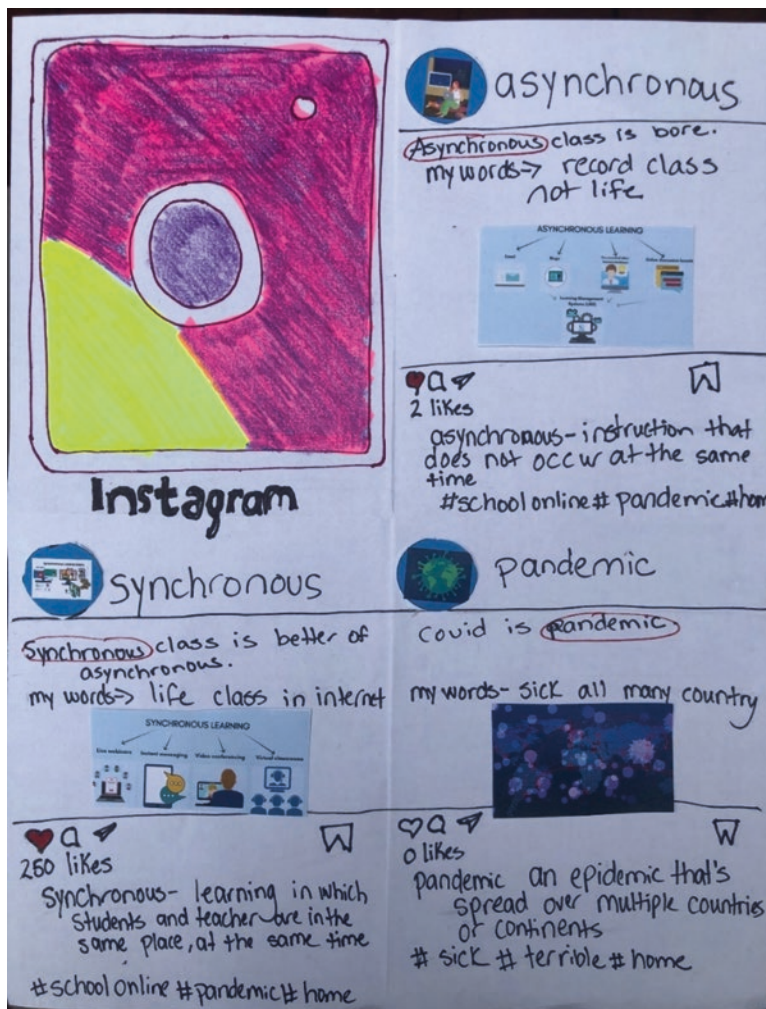 Instagram
asynchronous
Asynchronous class is bore.
my words→ record class
not life
ASYNCHRONOUS LEARNING
Email
Blogs
Online discussion boards
Learning Management
Systems (LMS)
2 likes
asynchronous-instruction that
does not occur at the same
time
#school online # pandemic #hom
synchronous
Synchronous class is better of
asynchronous.
my words→ life class in internet
SYNCHRONOUS LEARNING
Live webinars Instant messaging Video conferencing Virtual classrooms
250 likes
Synchronous- learning in which
students and teacher are in the
same place, at the same time
#school online #pandemic # home
pandemic
Covid is pandemic
my words- sick all many country
0 likes
pandemic an epidemic that's
spread over multiple countries
or continents
# sick # terrible # home